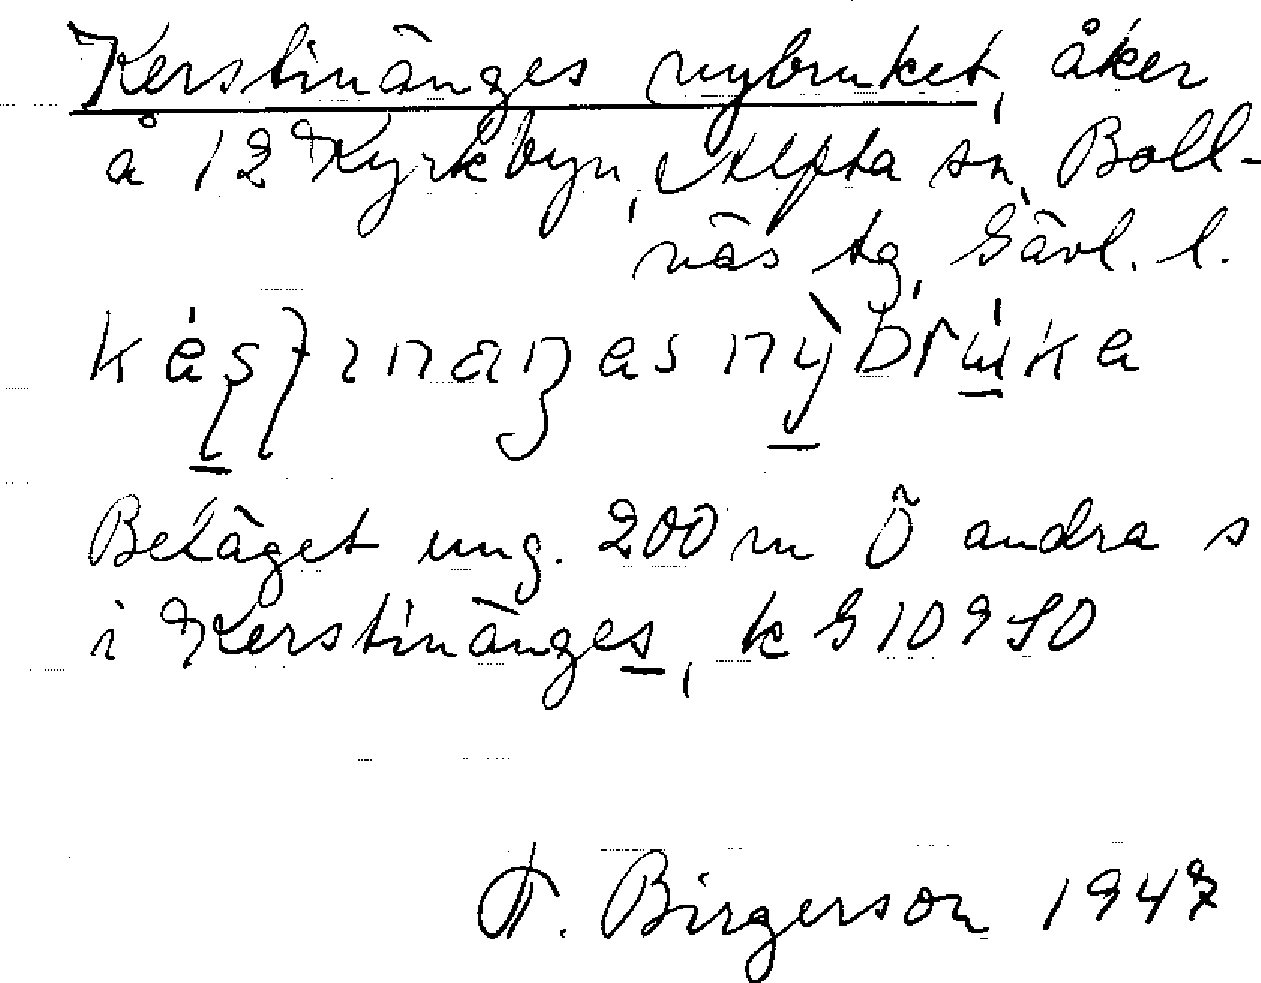 Kerstinänges nybruket, åker
å 12 Kyrkbyn, Alfta sn, Boll-
näs tg, Gävl. l.
Beläget ung. 200 m Ö andra s
i Kerstinänges, k G 10950
F. Birgerson 1947